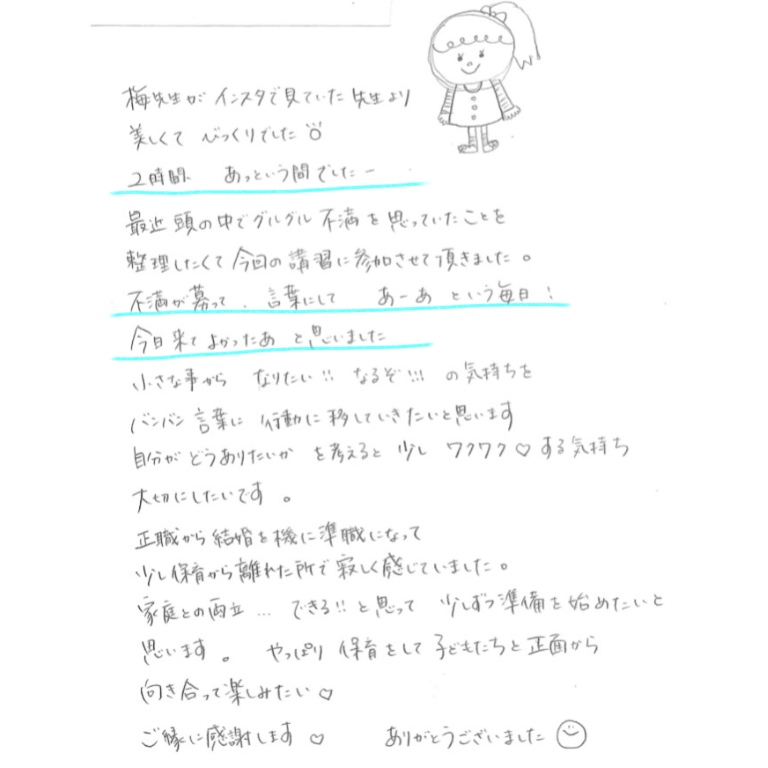 梅先生がインスタで見ていた先生より
美しくて びっくりでした
2時間 あっという間でしたー
最近頭の中でグルグル不満を思っていたことを
整理したくて今回の講習に参加させて頂きました。
不満が募って、言葉にして あーあ という毎日!
今日来てよかったあ と思いました
小さな事から なりたい!! なるぞ!!! の気持ちを
バンバン言葉に 行動に移していきたいと思います
自分がどうありたいか を考えると 少し ワクワク♡する気持ち
大切にしたいです。
正職から結婚を機に準職になって
少し保育から離れた所で寂しく感じていました。
家庭との両立… できる!!と思って 少しずつ準備を始めたいと
思います。 やっぱり 保育をして子どもたちと正面から
向き合って楽しみたい♡
ご縁に感謝します♡ ありがとうございました